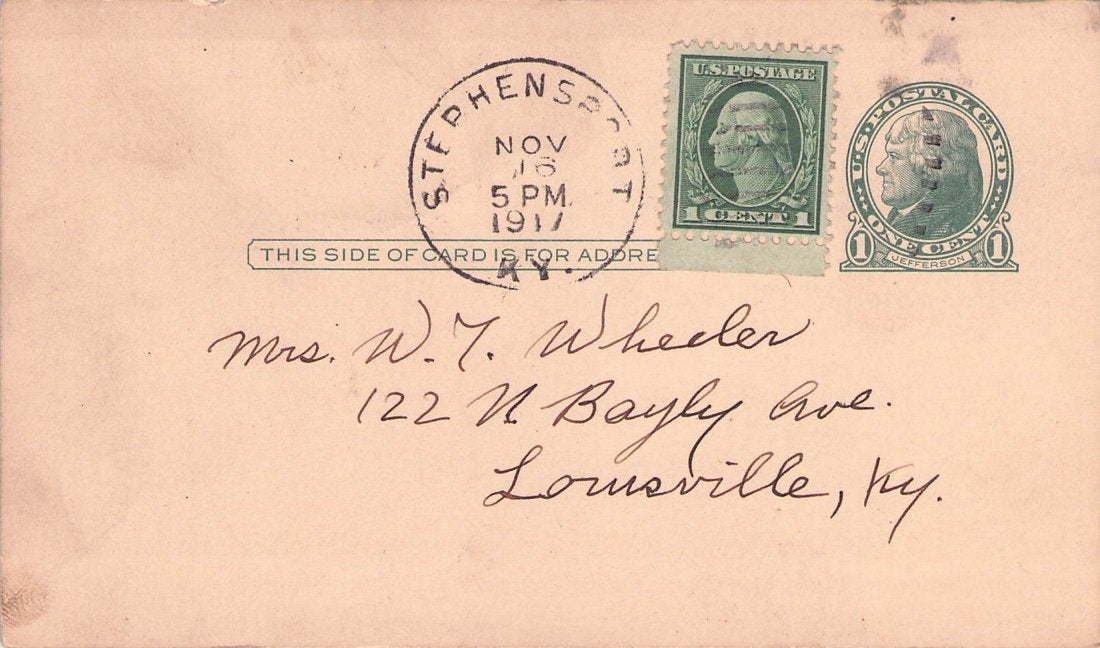 STEPHENSPORT
NOV
16
5 PM.
1917
KY.
U.S. POSTAGE
1 CENT 1
U.S. POSTAL CARD
1 ONE CENT 1
JEFFERSON
THIS SIDE OF CARD IS FOR ADDRE
Mrs. W. T. Wheeler
122 N. Bayly Ave.
Louisville, Ky.